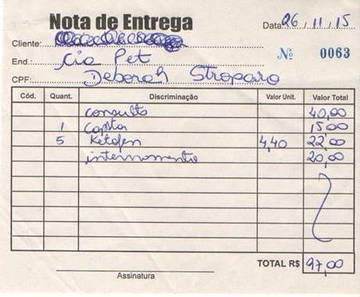 Nota de Entrega
Data 26 / 11 / 15
Cliente:
Nº 0063
End.: Cia Pet
CPF: Deborah Stroparo
Cód. Quant. Discriminação Valor Unit. Valor Total
consulta 40,00
1 15,00
5 Ketofen 4,40 22,00
internamento 20,00
TOTAL R$ 97,00
Assinatura